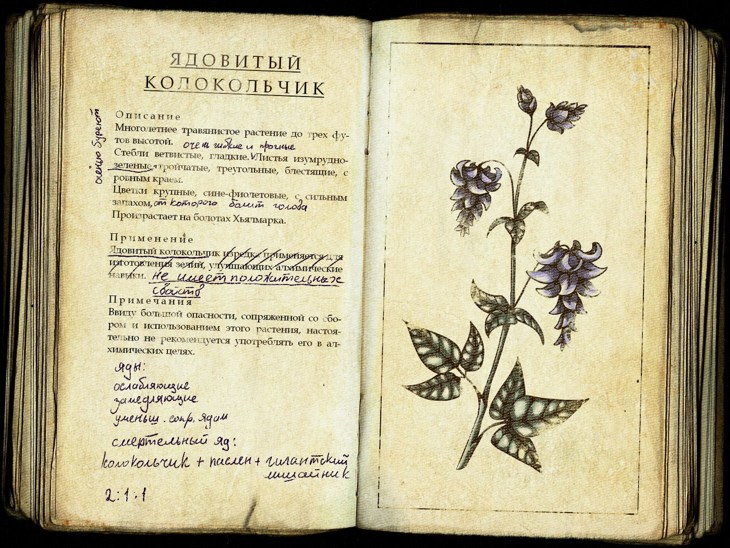 ЯДОВИТЫЙ
КОЛОКОЛЬЧИК
Описание
Многолетнее травянистое растение до трех фу-
тов высотой. очень гибкие и прочные
Стебли ветвистые, гладкие. Листья изумрудно-
зеленые, тройчатые, треугольные, блестящие, с
ровным краем.
Цветки крупные, сине-фиолетовые, с сильным
запахом, от которого болит голова
Произрастает на болотах Хьялмарка.
осенью буреют
Применение
Ядовитый колокольчик изредка применяется для
изготовления зелий, улучшающих алхимические
навыки. не имеет положительных
свойств
Примечания
Ввиду большой опасности, сопряженной со сбо-
ром и использованием этого растения, настоя-
тельно не рекомендуется употреблять его в ал-
химических целях.
яды:
ослабляющие
замедляющие
уменьш. сопр. ядам
смертельный яд:
колокольчик + паслен + гигантский
лишайник
2:1.1